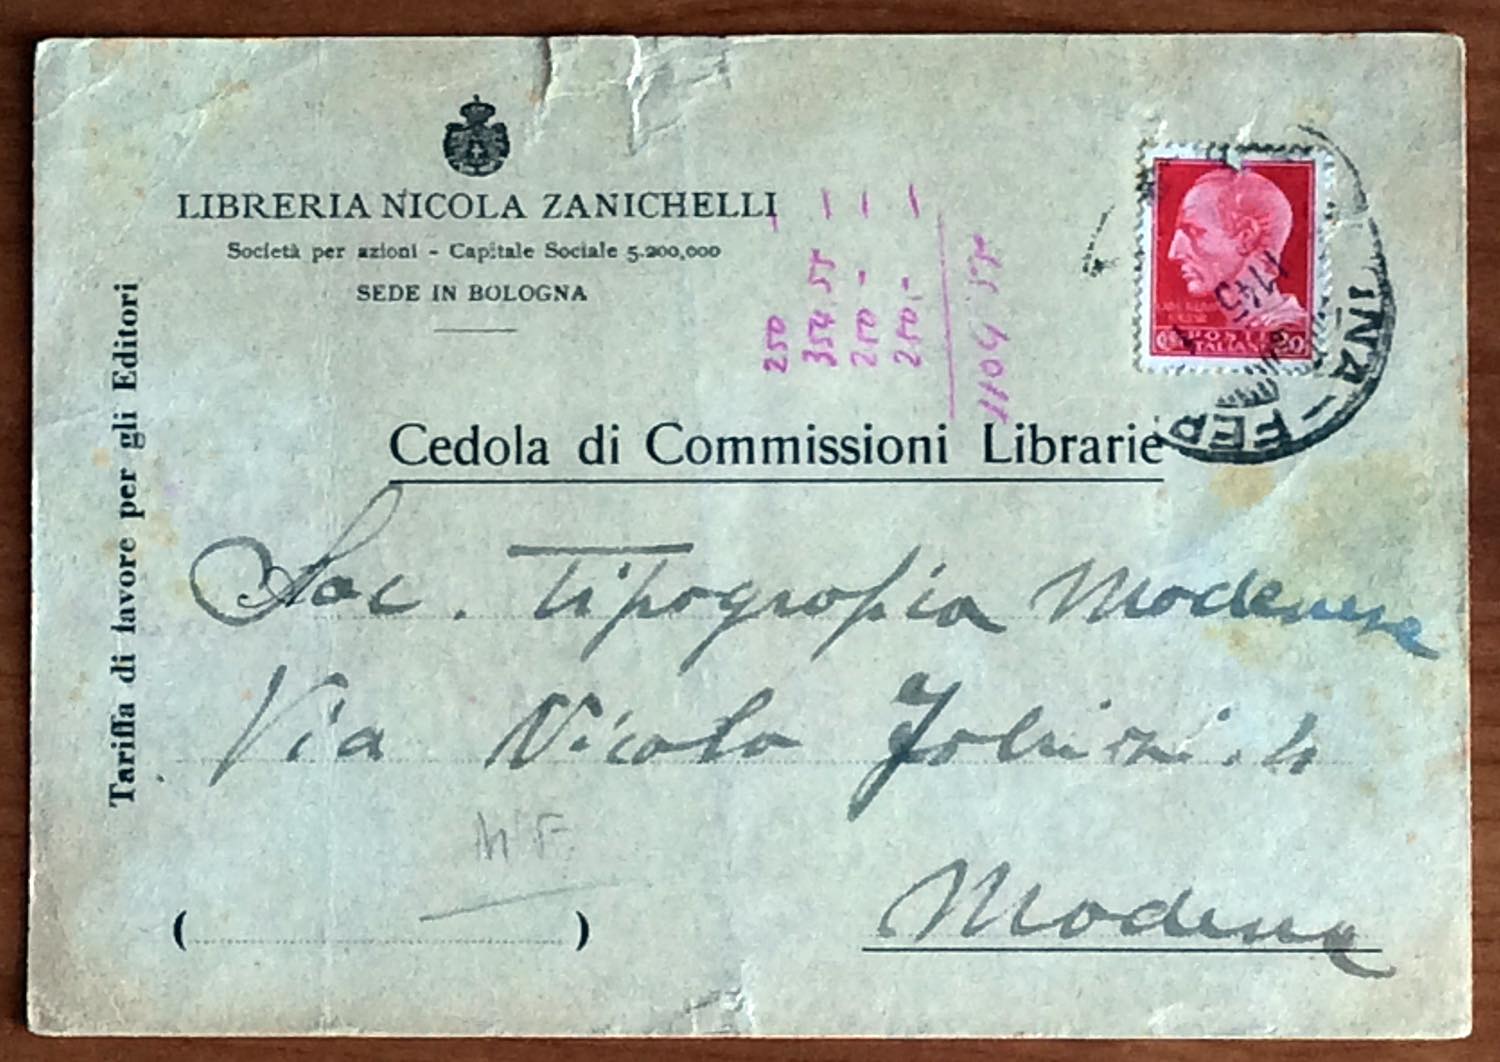 LIBRERIA NICOLA ZANICHELLI
Società per azioni - Capitale Sociale 5.200,000
SEDE IN BOLOGNA
Tariffa di lavore per gli Editori
250
354.55
250 -
250,-
1104 55
POSTE
ITALIANE
20
INA - FER
Cedola di Commissioni Librarie
Soc. Tipografia Modenese
Via Nicolo
Modena
( )